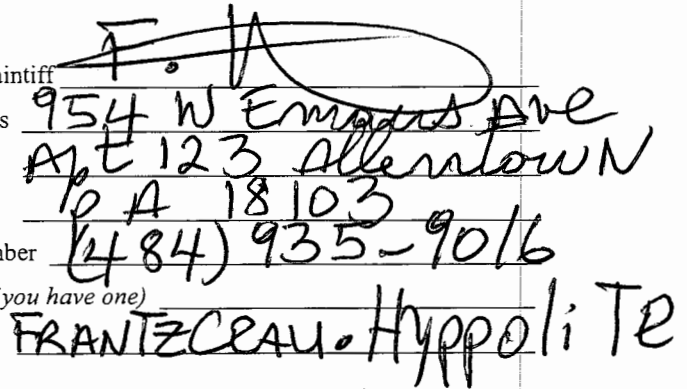 aintiff F. H
s 954 W Emmaus Ave
Apt 123 Allentown
PA 18103
nber (484) 935-9016
you have one)
FRANTZCEAU. HyppoliTe